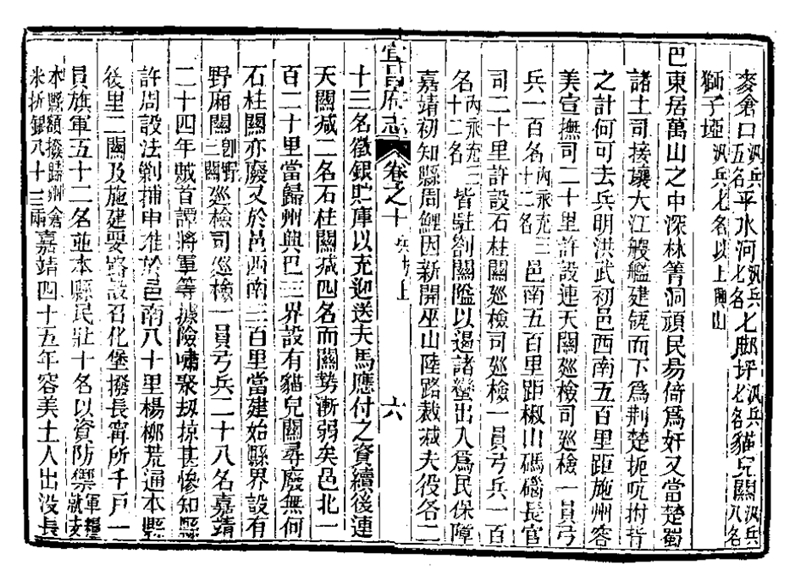 麥倉口汛兵五名平水河汛兵七名七郎坪汛兵七名貓兒關汛兵八名
獅子埡汛兵七名以上興山
巴東居萬山之中深林箐洞頑民易倚為奸又當楚蜀
諸土司接壤大江艘艦建瓴而下為荆楚扼吭拊背
之計何可去兵明洪武初邑西南五百里距施州容
美宣撫司二十里許設連天關廵檢司廵檢一員弓
兵一百名内永充三十二名邑南五百里距椒山瑪瑙長官
司二十里許設石柱關廵檢司廵檢一員弓兵一百
名内永充三十二名皆駐劄關隘以遏諸蠻出入為民保障
嘉靖初知縣周鯉因新開巫山陸路裁减夫役各二
宜昌府志 卷之十 兵防上 六
十三名徵銀貯庫以充迎送夫馬應付之資續後連
天關减二名石柱關减四名而關勢漸弱矣邑北一
百二十里當歸州興巴三界設有貓兒關尋廢無何
石柱關亦廢又於邑西南三百里當建始縣界設有
野廂關即野三關廵檢司廵檢一員弓兵二十八名嘉靖
二十四年賊首譚將軍等據險嘯聚刼掠甚慘知縣
許周設法剿捕申准於邑南八十里楊柳荒通本縣
後里二關及施建要路設召化堡撥長寧所千戶一
員旗軍五十二名並本縣民壯十名以資防禦軍糧就支
本縣額撥歸州倉米折銀八十三兩嘉靖四十五年容美土人出没長